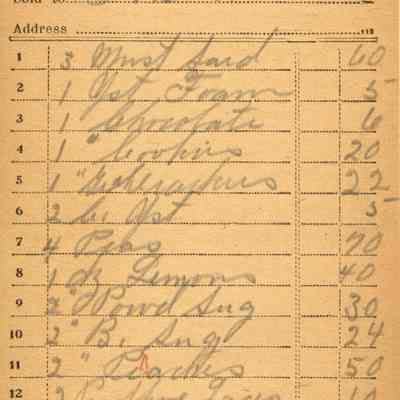 Sold to
Address
1 3 Must Sard 60
2 1 Yst Foam 5
3 1 Chocolate 6
4 1 " Cookies 20
5 1 " 22
6 2 C. Yst 5
7 4 Peas 70
8 1 dz Lemons 40
9 2 " Powd Sug 30
10 2 " B. Sug 24
11 2 " Peaches 50
12 2 10